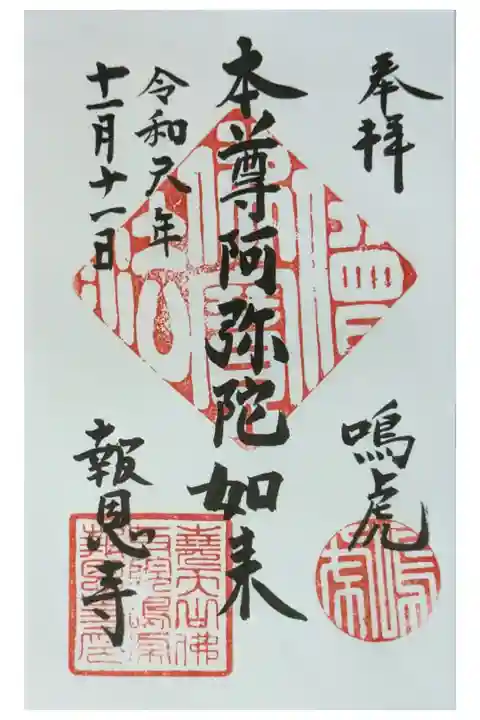 奉拝
鳴虎
本尊阿弥陀如来
令和元年
十一月十一日
報恩寺